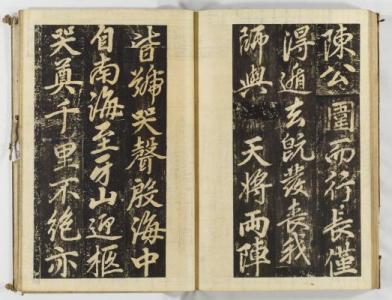 陳公圍而行長僅
得遁去既發喪我
師與 天將兩陣
皆號哭聲殷海中
自南海至牙山迎柩
哭奠千里不絕亦